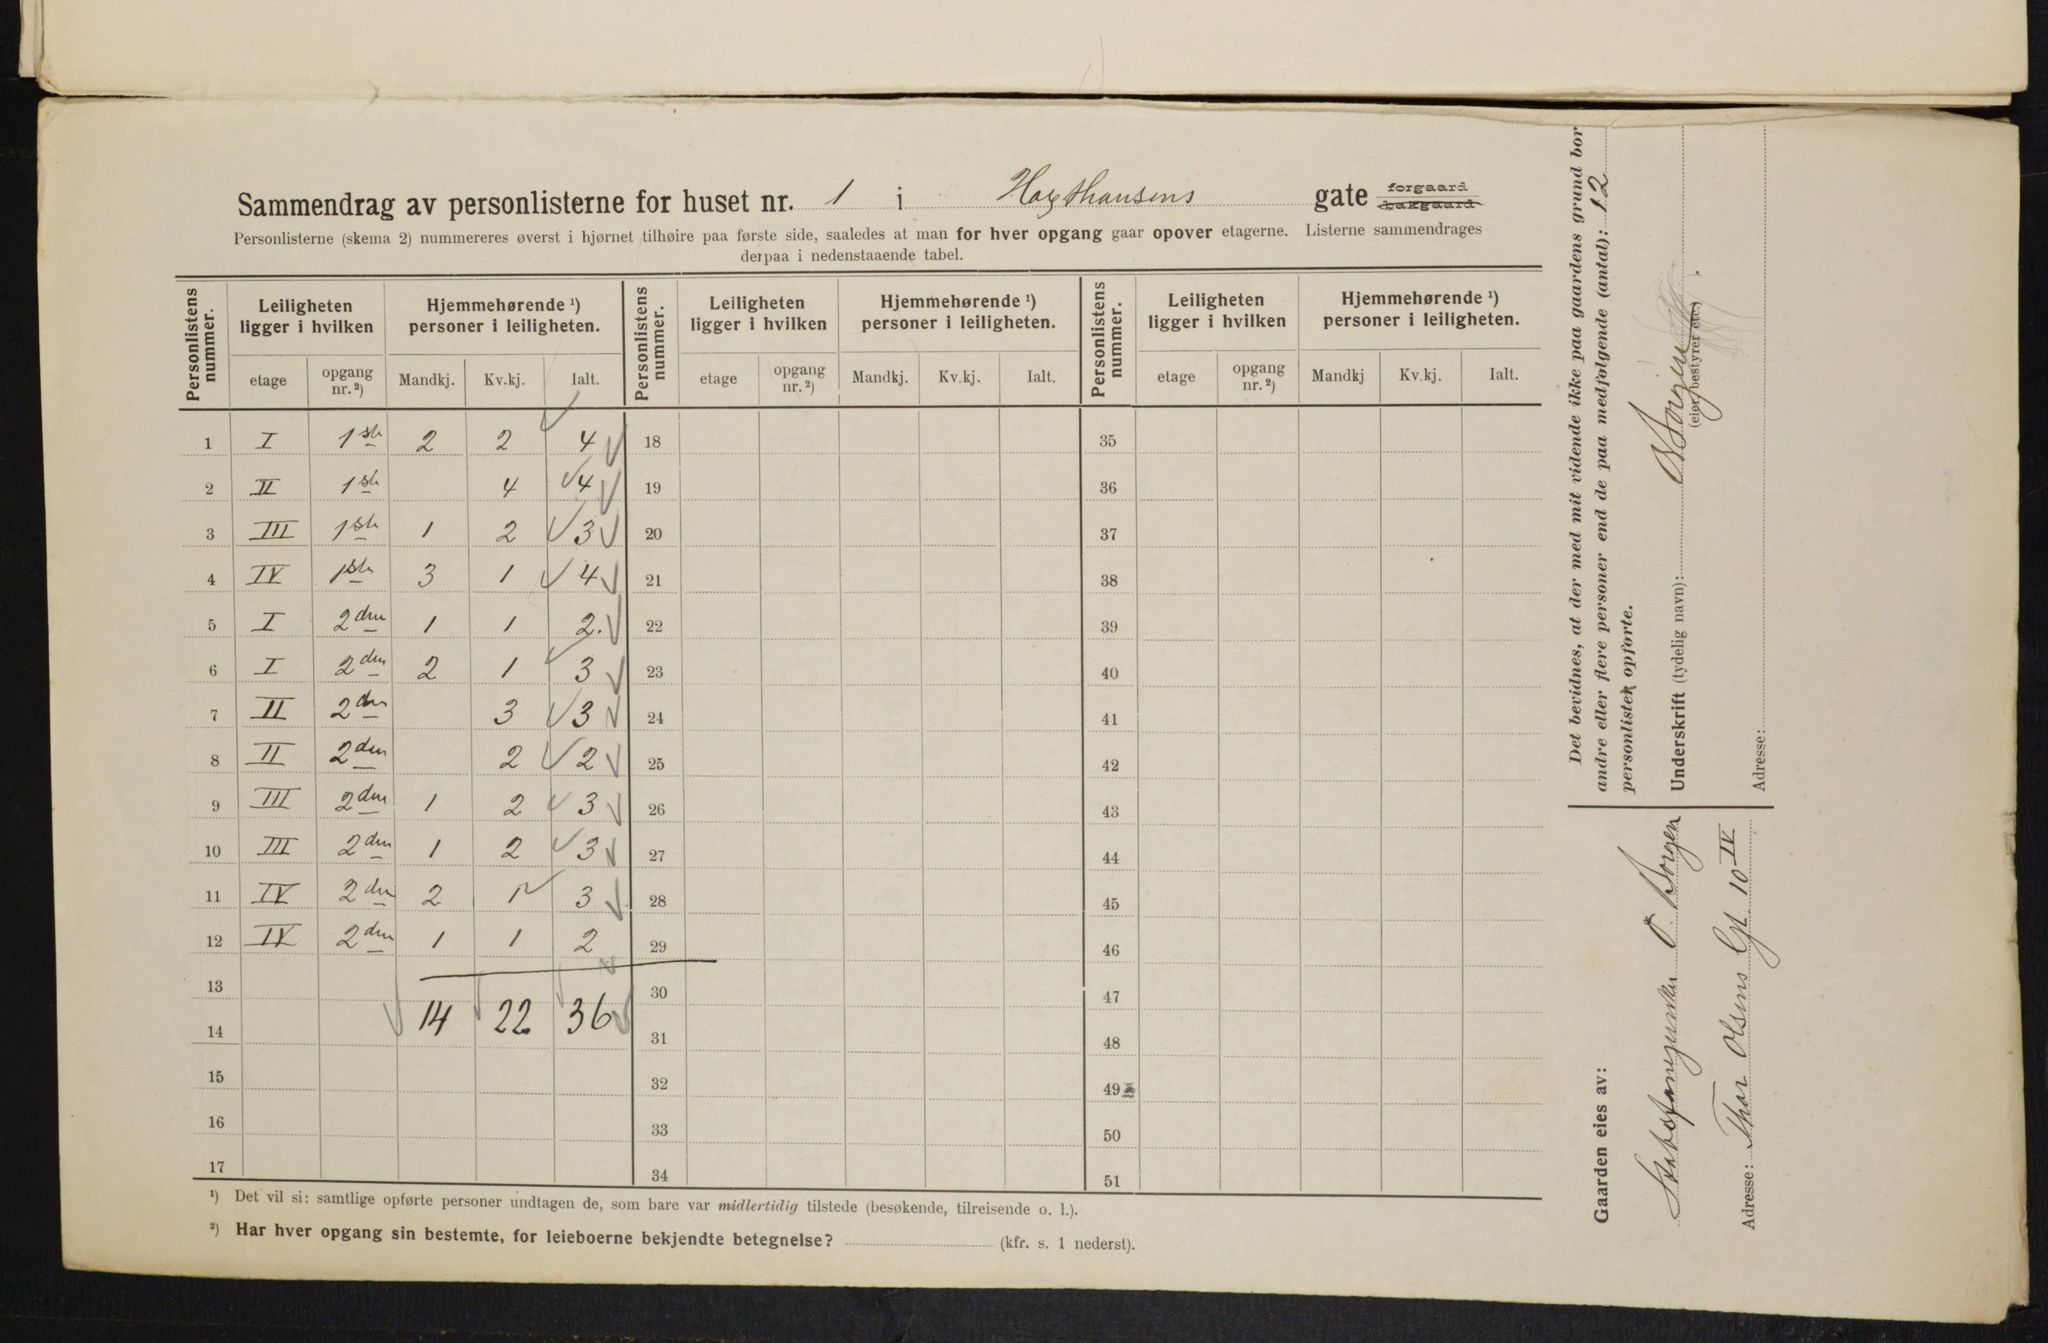 Sammendrag av personlisterne for huset nr. 1 i Haxthausens gate forgaard bakgaard
Personlisterne (skema 2) nummereres øverst i hjørnet tilhøire paa første side, saaledes at man for hver opgang gaar opover etagerne. Listerne sammendrages
derpaa i nedenstaaende tabel.
Personlistens nummer. Leiligheten ligger i hvilken Hjemmehørende ¹) personer i leiligheten. Personlistens nummer. Leiligheten ligger i hvilken Hjemmehørende ¹) personer i leiligheten. Personlistens nummer. Leiligheten ligger i hvilken Hjemmehørende ¹) personer i leiligheten.
etage opgang nr. ²) Mandkj. Kv.kj. Ialt. etage opgang nr. ²) Mandkj. Kv.kj. Ialt. etage opgang nr. ²) Mandkj Kv.kj. Ialt.
1 I 1ste 2 2 4 18 35
2 II 1ste 4 4 19 36
3 III 1ste 1 2 3 20 37
4 IV 1ste 3 1 4 21 38
5 I 2den 1 1 2. 22 39
6 I 2den 2 1 3 23 40
7 II 2den 3 3 24 41
8 II 2den 2 2 25 42
9 III 2den 1 2 3 26 43
10 III 2den 1 2 3 27 44
11 IV 2den 2 1 3 28 45
12 IV 2den 1 1 2 29 46
13 30 47
14 14 22 36 31 48
15 32 49
16 33 50
17 34 51
¹) Det vil si: samtlige opførte personer undtagen de, som bare var midlertidig tilstede (besøkende, tilreisende o. l.).
²) Har hver opgang sin bestemte, for leieboerne bekjendte betegnelse? (kfr. s. 1 nederst).
Det bevidnes, at der med mit vidende ikke paa gaardens grund bor
andre eller flere personer end de paa medfølgende (antal): 12
personlister opførte.
Underskrift (tydelig navn):
(eier, bestyrer etc.)
Adresse:
Gaarden eies av:
Adresse: Thor Olsens Gt. 10 IV